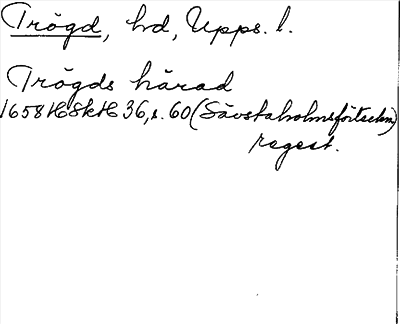 Trögd, hd, Upps. l.
Trögds härad
1658 HSkH 36, s. 60 (Sävstaholmsförteckn)
regest.